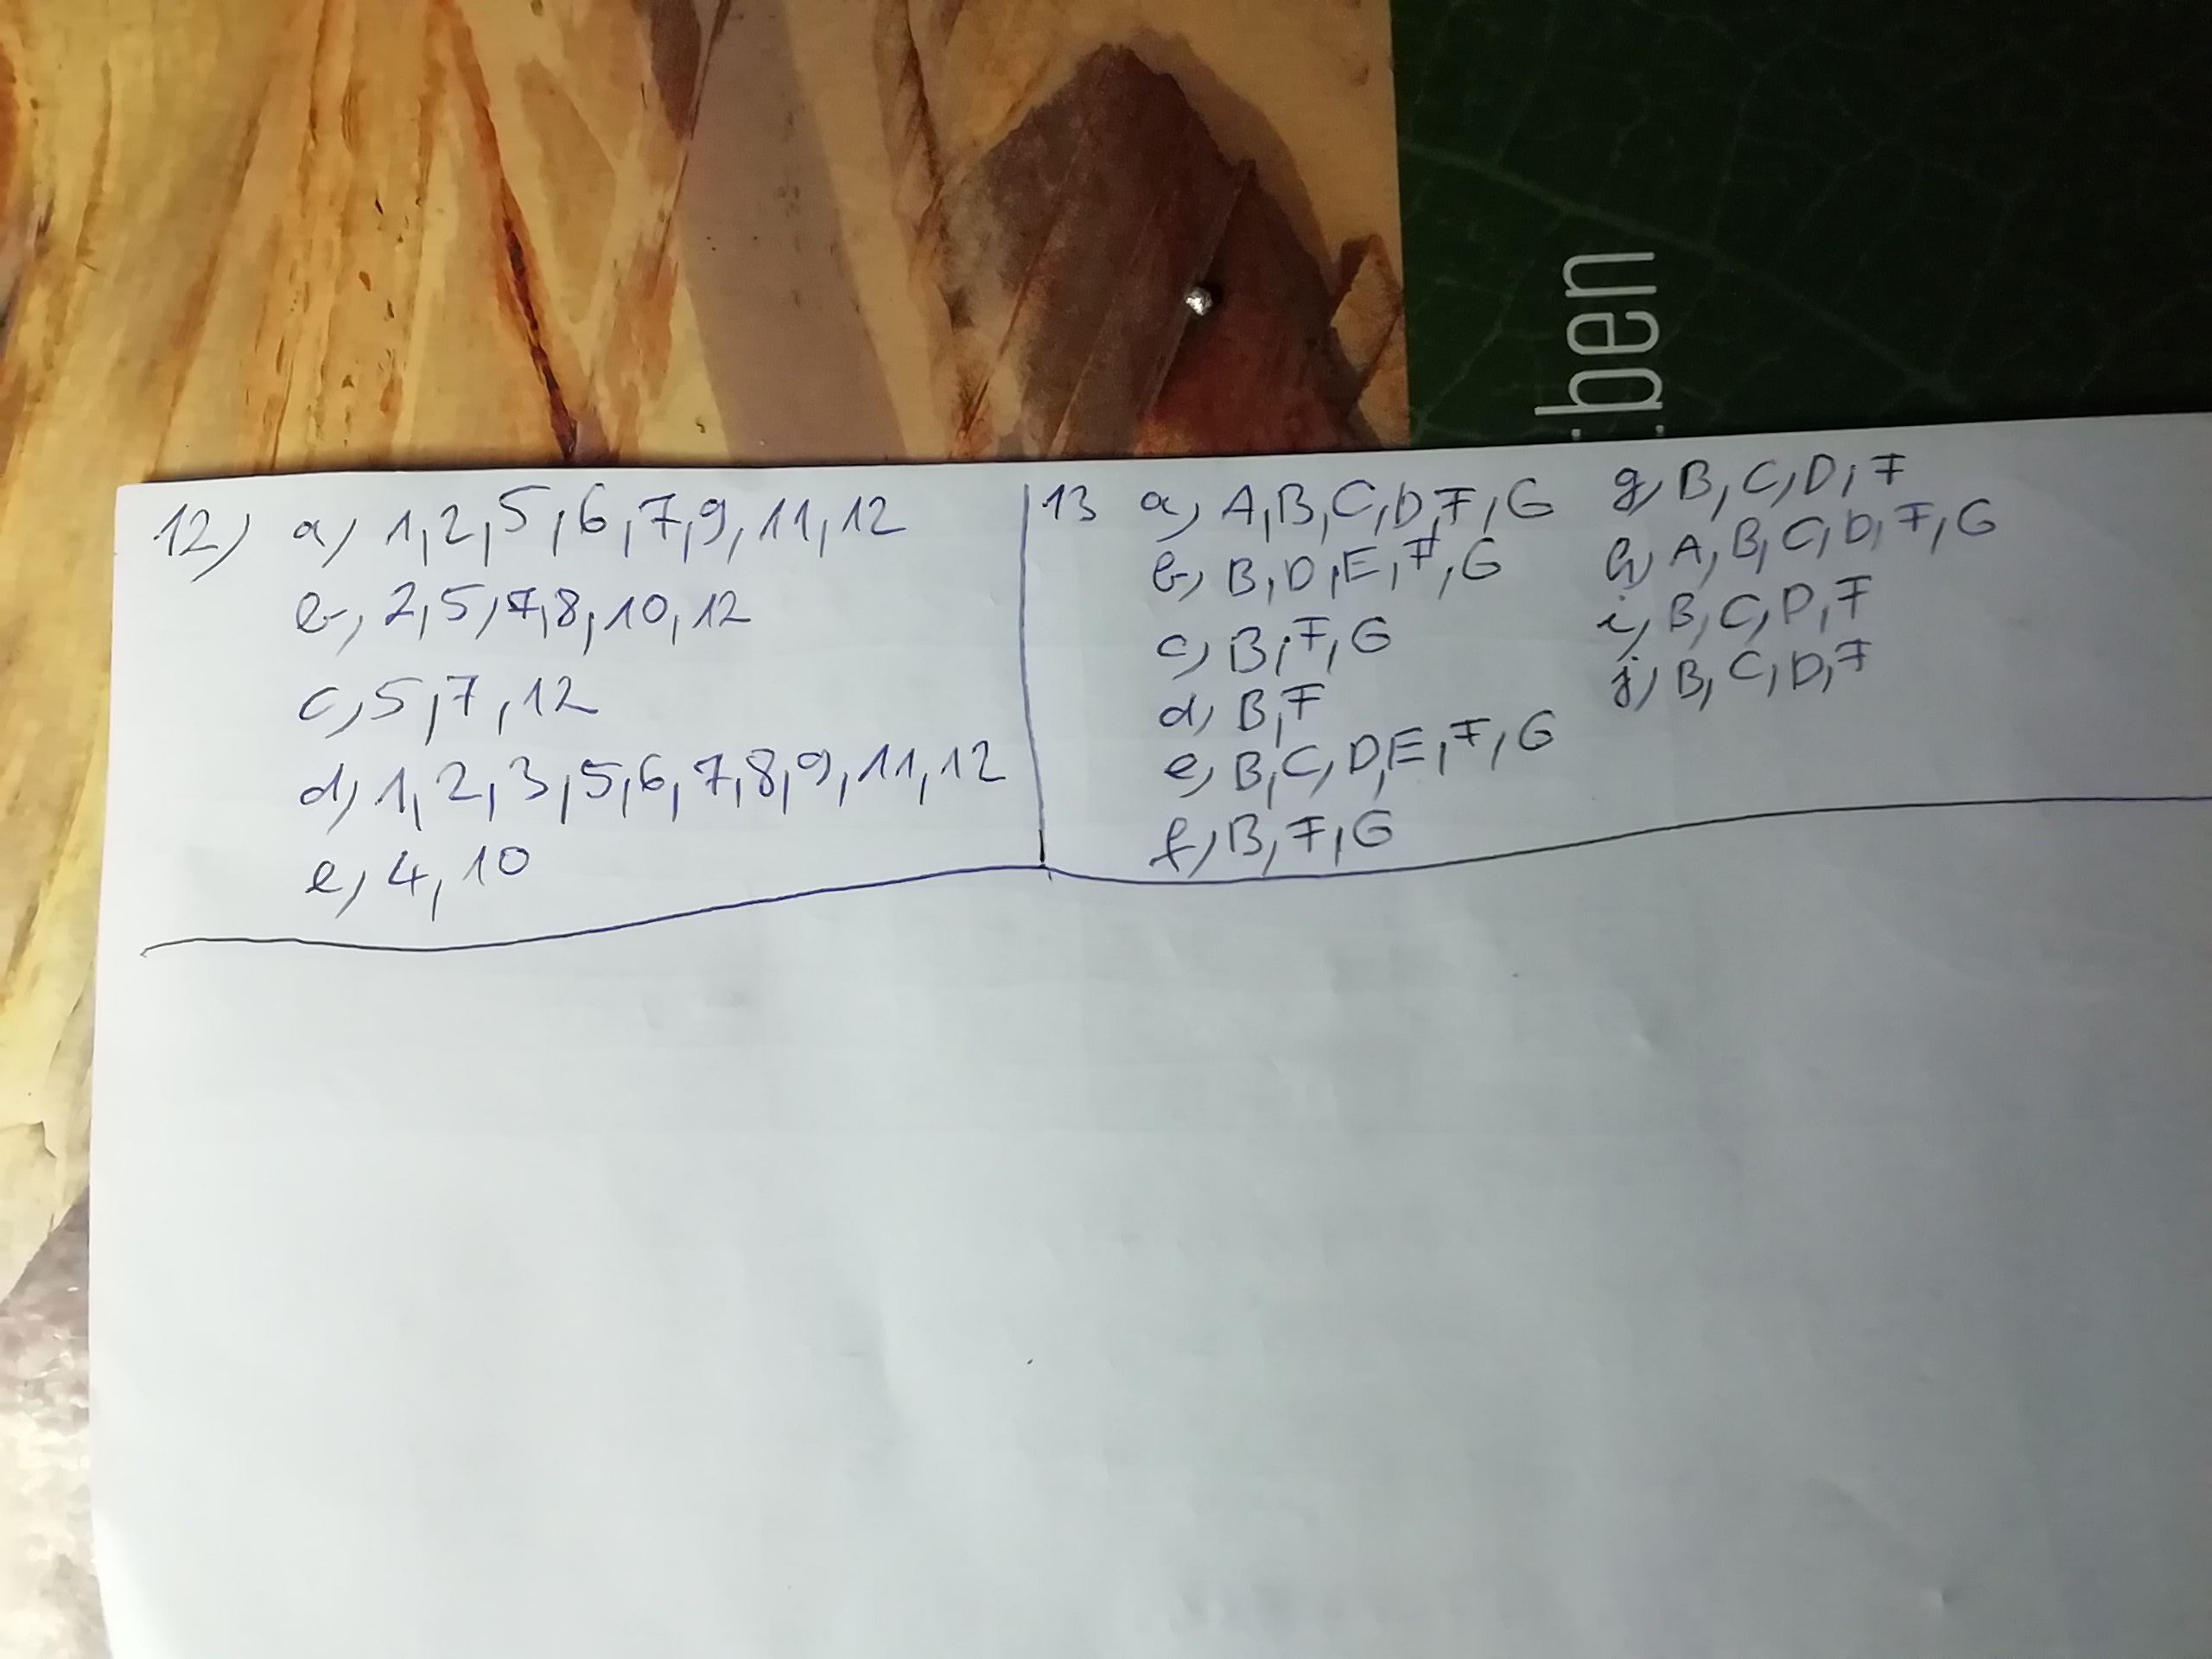 :ben
12) a, 1,2,5,6,7,9,11,12
b, 2,5,7,8,10,12
c, 5,7,12
d, 1,2,3,5,6,7,8,9,11,12
e, 4,10
13 a, A,B,C,D,F,G
b, B,D,E,F,G
c, B,F,G
d, B,F
e, B,C,D,E,F,G
f, B,F,G
g, B,C,D,F
h, A,B,C,D,F,G
i, B,C,D,F
j, B,C,D,F